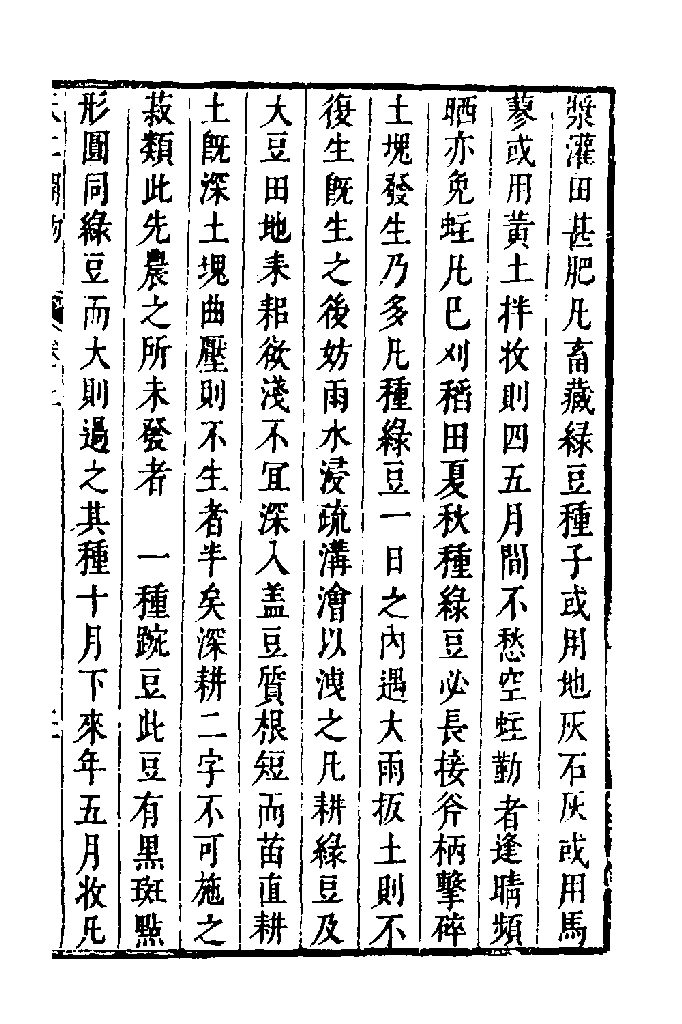 漿灌田甚肥凡畜藏綠豆種子或用地灰石灰或用馬
蓼或用黃土拌收則四五月間不愁空蛀勤者逢晴頻
晒亦免蛀凡已刈稻田夏秋種綠豆必長接斧柄擊碎
土塊發生乃多凡種綠豆一日之內遇大雨扳土則不
復生既生之後妨雨水浸疏溝澮以洩之凡耕綠豆及
大豆田地耒耜欲淺不宜深入盖豆質根短而苗直耕
土既深土塊曲壓則不生者半矣深耕二字不可施之
菽類此先農之所未發者　一種豌豆此豆有黑斑點
形圓同綠豆而大則過之其種十月下來年五月收凡